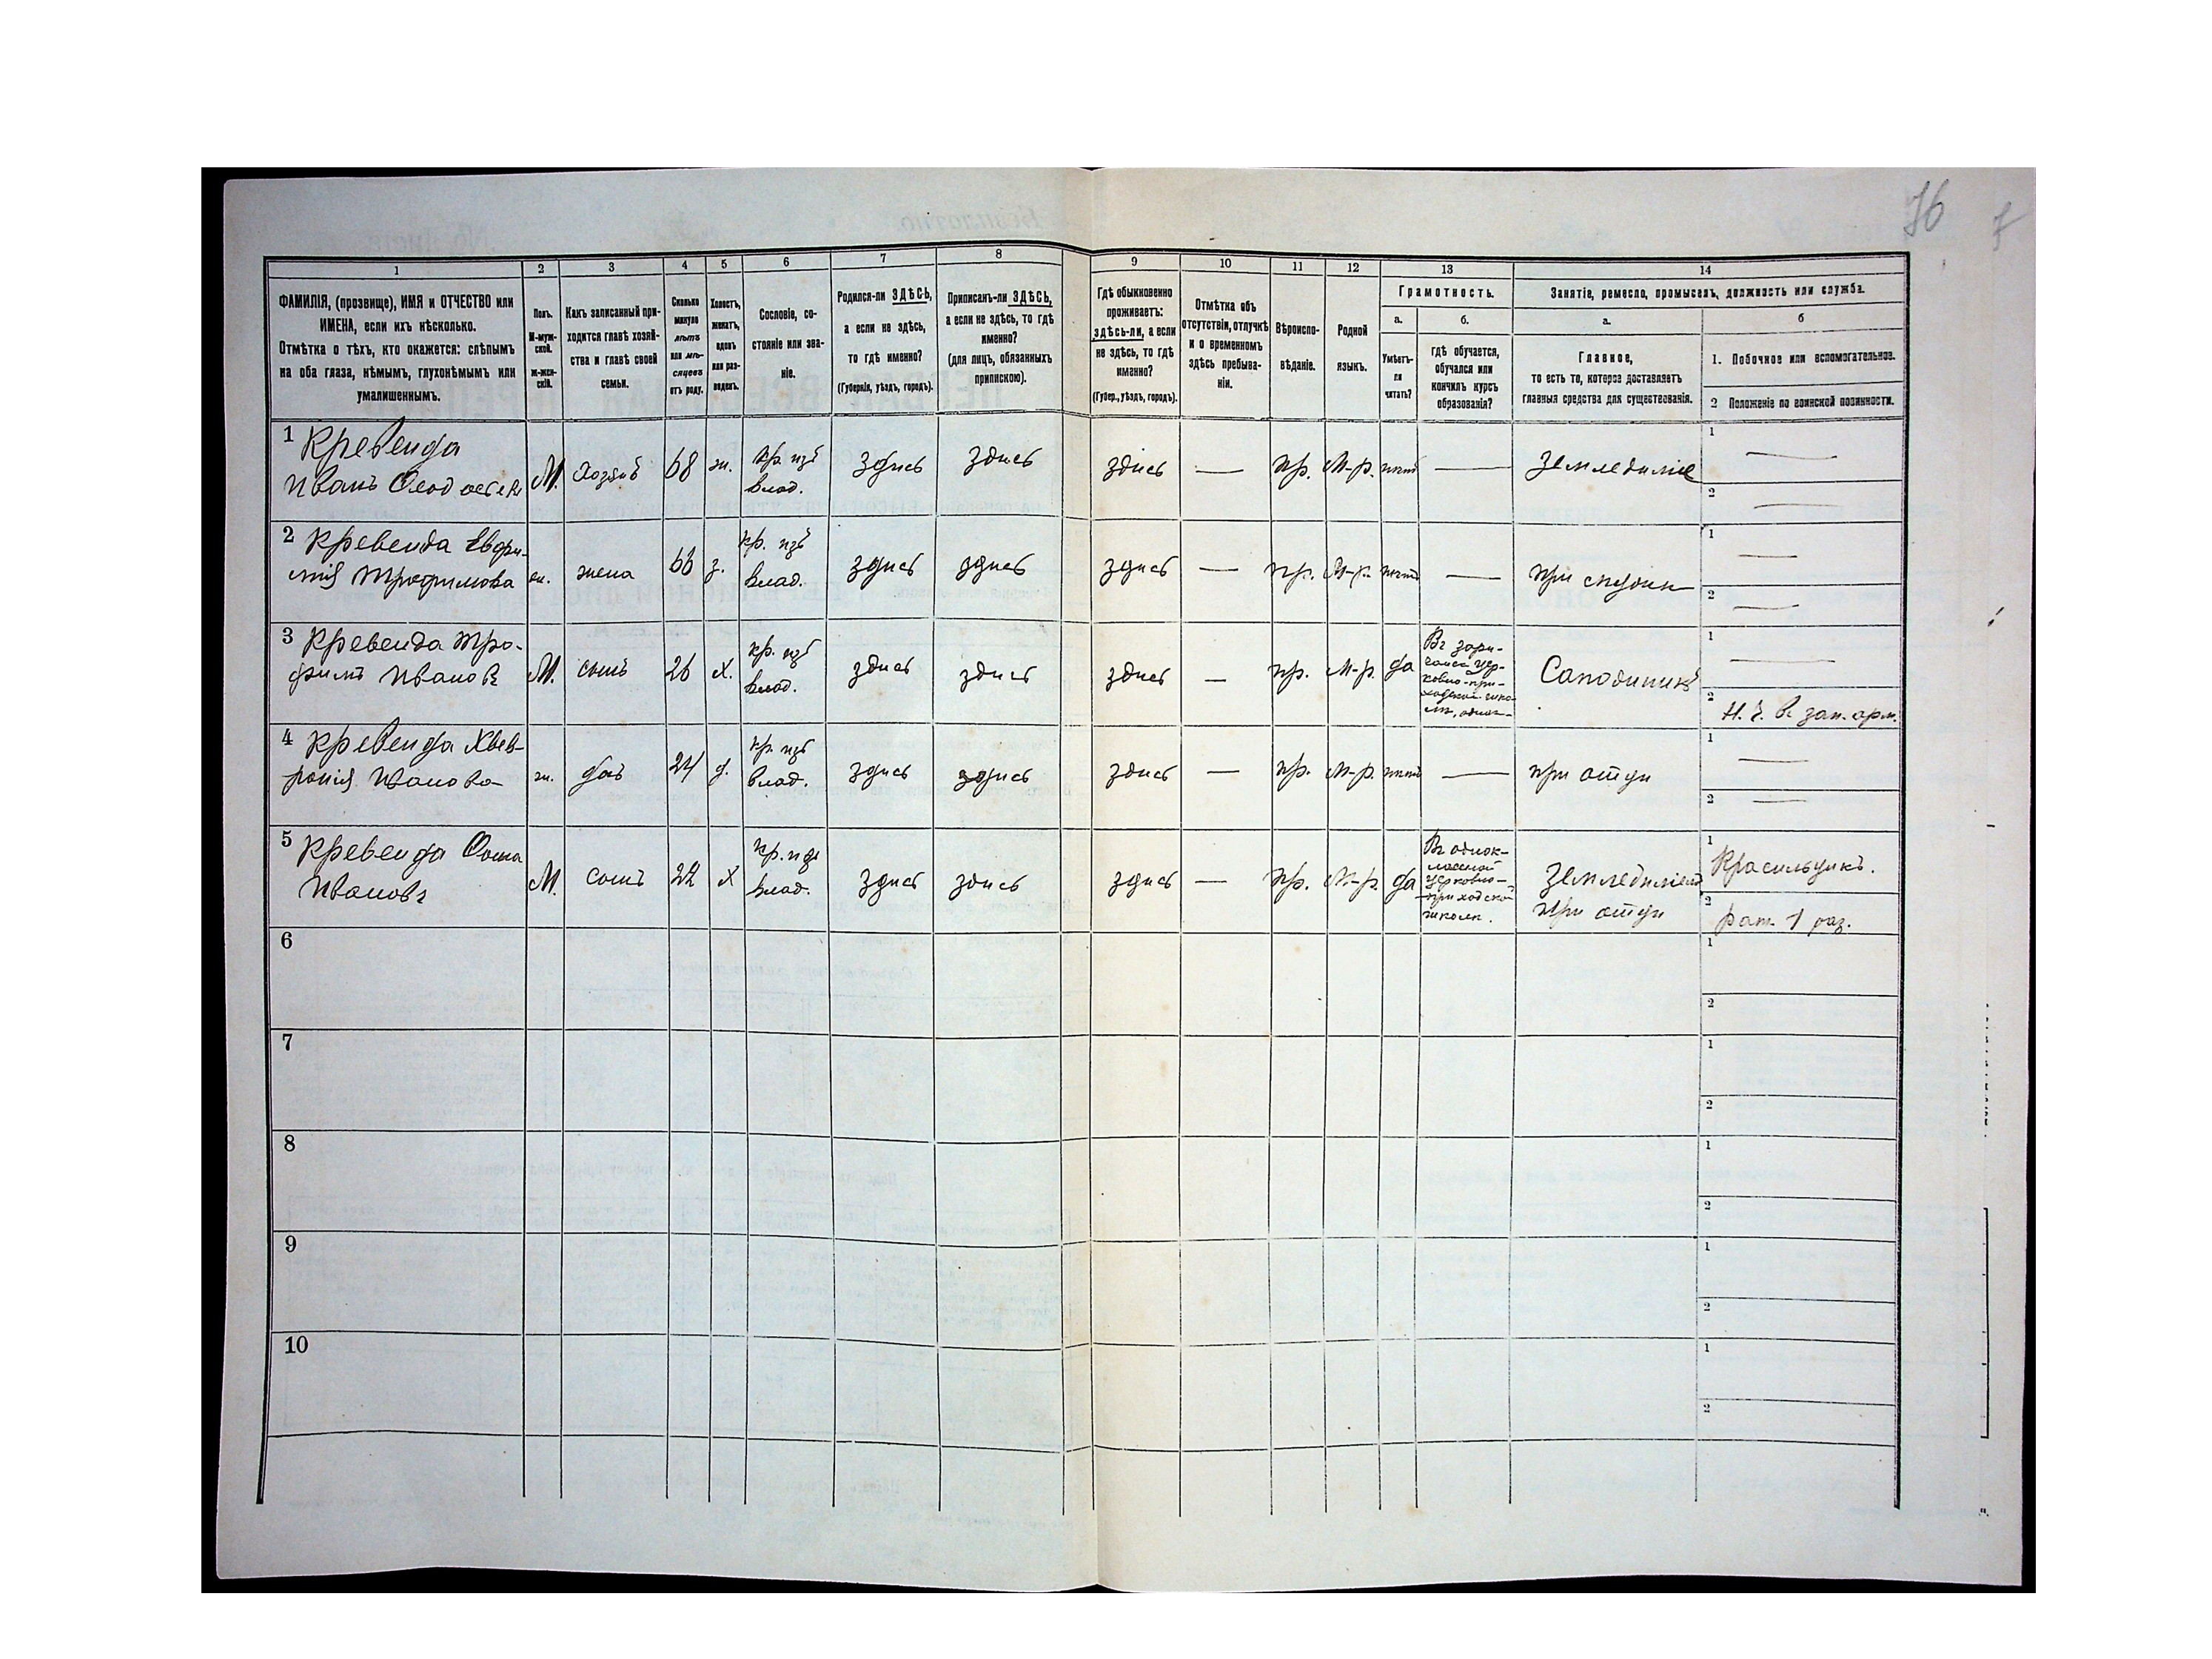 76
1
2
3
4
5
6
7
8
9
10
11
12
13
14
ФАМИЛІЯ, (прозвище), ИМЯ и ОТЧЕСТВО или
ИМЕНА, если ихъ нѣсколько.
Отмѣтка о тѣхъ, кто окажется: слѣпымъ
на оба глаза, нѣмымъ, глухонѣмымъ или
умалишеннымъ.
Полъ.
М-муж-
ской.
ж-жен-
скій.
Какъ записанный при-
ходится главѣ хозяй-
ства и главѣ своей
семьи.
Сколько
минуло
лѣтъ
или мѣ-
сяцевъ
отъ роду.
Холостъ,
женатъ,
вдовъ
или раз-
веденъ.
Сословіе, со-
стояніе или зва-
ніе.
Родился-ли ЗДѢСЬ,
а если не здѣсь,
то гдѣ именно?
(Губернія, уѣздъ, городъ).
Приписанъ-ли ЗДѢСЬ,
а если не здѣсь, то гдѣ
именно?
(для лицъ, обязанныхъ
припискою).
Гдѣ обыкновенно
проживаетъ:
здѣсь-ли, а если
не здѣсь, то гдѣ
именно?
(Губер., уѣздъ, городъ).
Отмѣтка объ
отсутствіи, отлучкѣ
и о временномъ
здѣсь пребыва-
ніи.
Вѣроиспо-
вѣданіе.
Родной
языкъ.
Грамотность.
а.
б.
Умѣетъ-
ли
читать?
гдѣ обучается,
обучался или
кончилъ курсъ
образованія?
Занятіе, ремесло, промыселъ, должность или служба.
а.
б
Главное,
то есть то, которое доставляетъ
главныя средства для существованія.
1. Побочное или вспомогательное.
2 Положеніе по воинской повинности.
1 Кревенда
Иванъ
М.
Хозяинъ
68
ж.
кр. изъ
влад.
здѣсь
здѣсь
здѣсь
—
пр.
М-р.
нѣтъ
—
Земледѣліе
1 —
2 —
2 Кревенда Евфи-
мія Трофимова
ж.
жена
66
з.
кр. изъ
влад.
здѣсь
здѣсь
здѣсь
—
пр.
М-р.
нѣтъ
—
при
1 —
2 —
3 Кревенда Тро-
фимъ Ивановъ
М.
сынъ
26
х.
кр. изъ
влад.
здѣсь
здѣсь
здѣсь
—
пр.
М-р.
да
Въ
цер-
ковно-при-
ходской шко-
лѣ,
Сапожникъ
1 —
2 Н. Ч. въ зап. арм.
4 Кревенда Хвев-
ронія Иванова
ж.
дочь
24
д.
кр. изъ
влад.
здѣсь
здѣсь
здѣсь
—
пр.
М-р.
нѣтъ
—
при отцѣ
1 —
2 —
5 Кревенда Фома
Ивановъ
М.
сынъ
22
Х
кр. изъ
влад.
здѣсь
здѣсь
здѣсь
—
пр.
М-р.
да
Въ однок-
лассной
церковно-
приходской
школѣ.
при отцѣ
1 Красильщикъ.
2 рат. 1 раз.
6
1
2
7
1
2
8
1
2
9
1
2
10
1
2